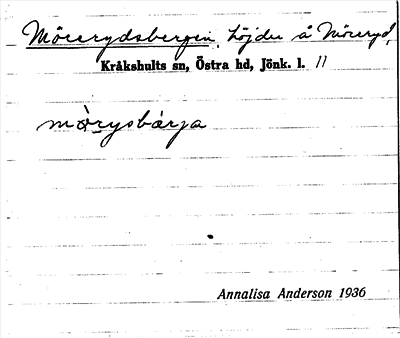 Mörerydsbergen, höjder å Möreryd,
Kråkshults sn, Östra hd, Jönk. l. 11
mò̀rysbárja
Annalisa Anderson 1936